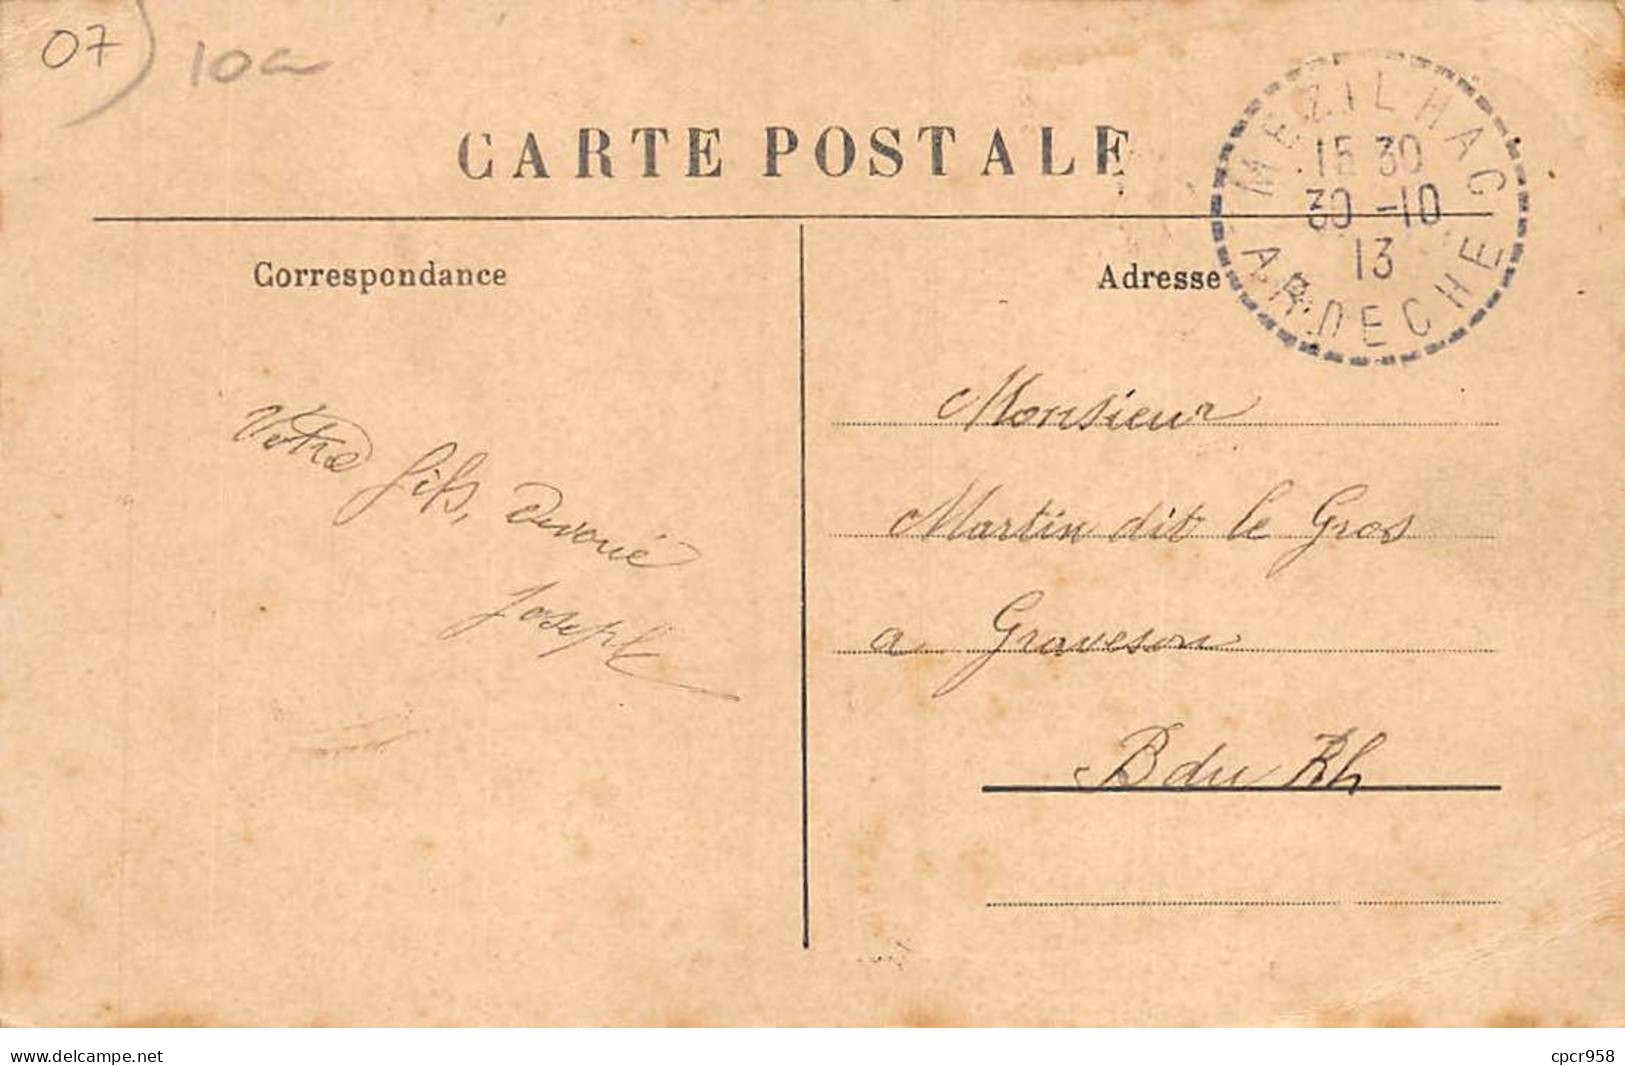 07) 10a
CARTE POSTALE
MEZILHAC
15 30
30 -10
13
ARDECHE
Correspondance
Adresse
Votre fils, devoué
Joseph
Monsieur
Martin dit le Gros
a Graveson
B du Rh
www.delcampe.net
cpcr958